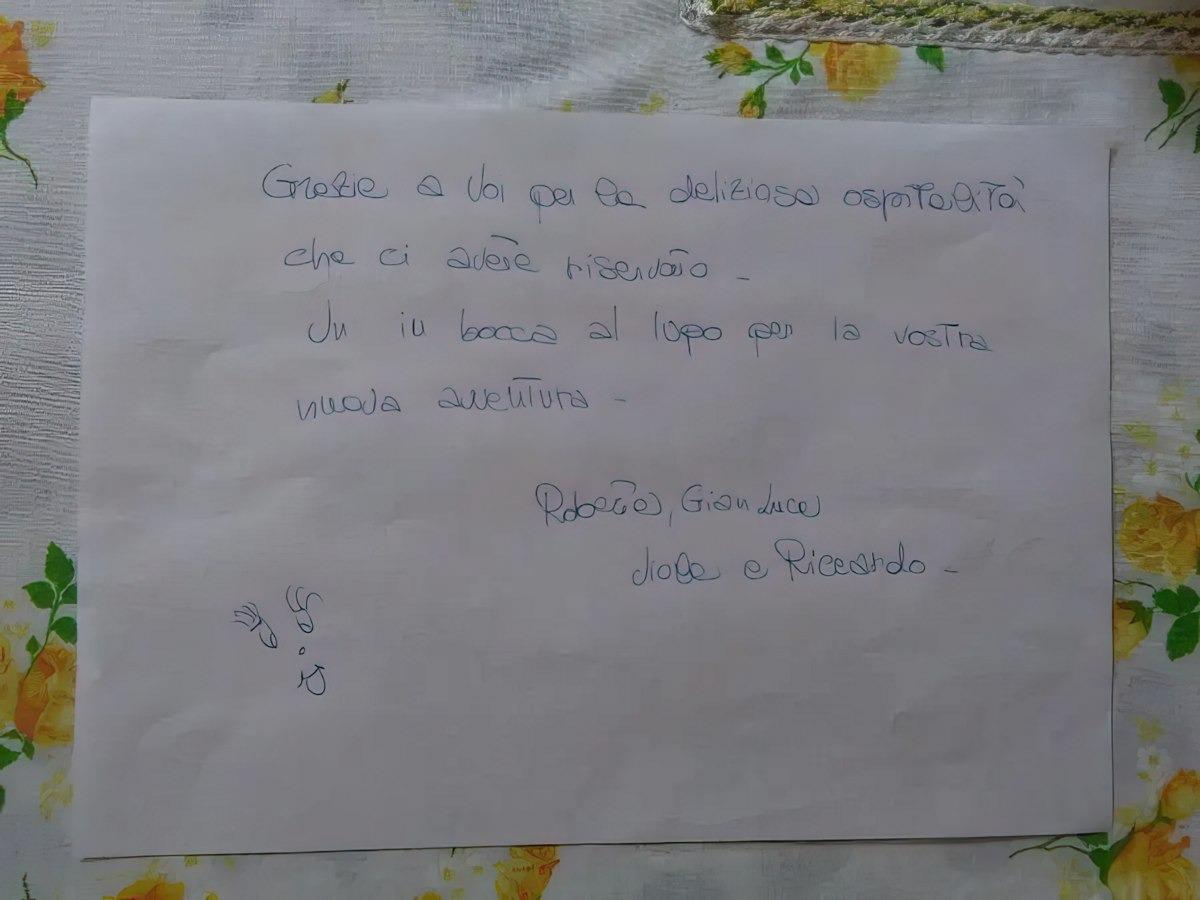 Grazie a Voi per la deliziosa ospitalità
che ci avete riservato -
Un in bocca al lupo per la vostra
nuova avventura -
Roberta, Gian Luca
Viola e Riccardo -